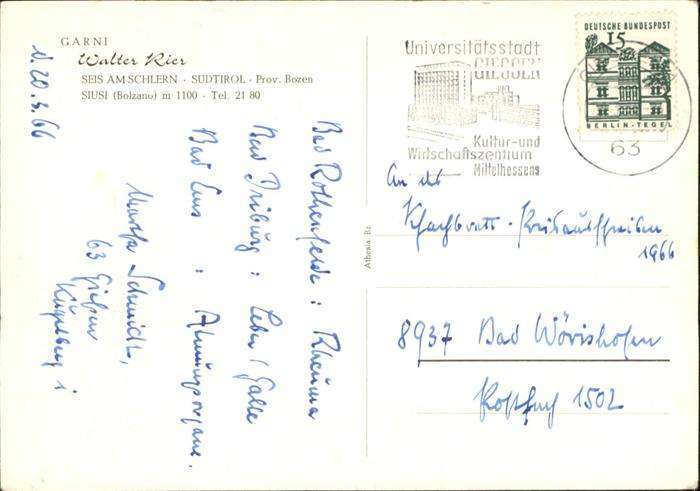 GARNI
Walter Rier
SEIS AM SCHLERN - SÜDTIROL - Prov. Bozen
SIUSI (Bolzano) m 1100 - Tel. 21 80
d. 20.4.66
Bad Rothenfelde : Rheuma
Bad Driburg : Leber / Galle
Bad Ems : Atmungsorgane.
Martha Schmidt,
63 Gießen
Universitätsstadt
GIESSEN
Kultur-und
Wirtschaftszentrum
Mittelhessens
DEUTSCHE BUNDESPOST
15
BERLIN-TEGEL
63
An das
Preisausschreiben
1966
8937 Bad Wörishofen
Postfach 1502
Athesia Bz